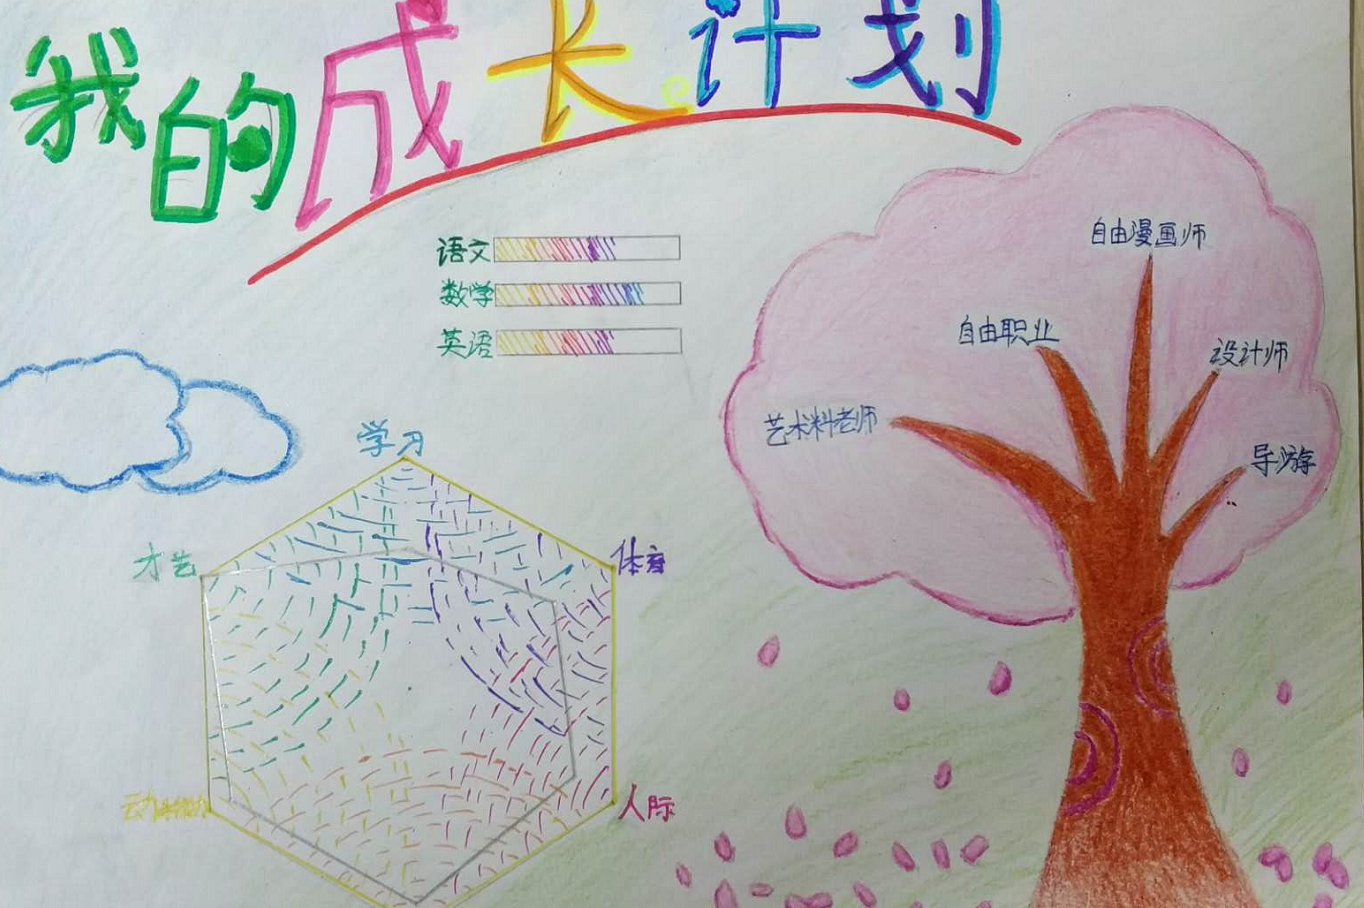 我的成长计划
语文
数学
英语
自由漫画师
自由职业
设计师
艺术料老师
导游
学习
才艺
体育
人际